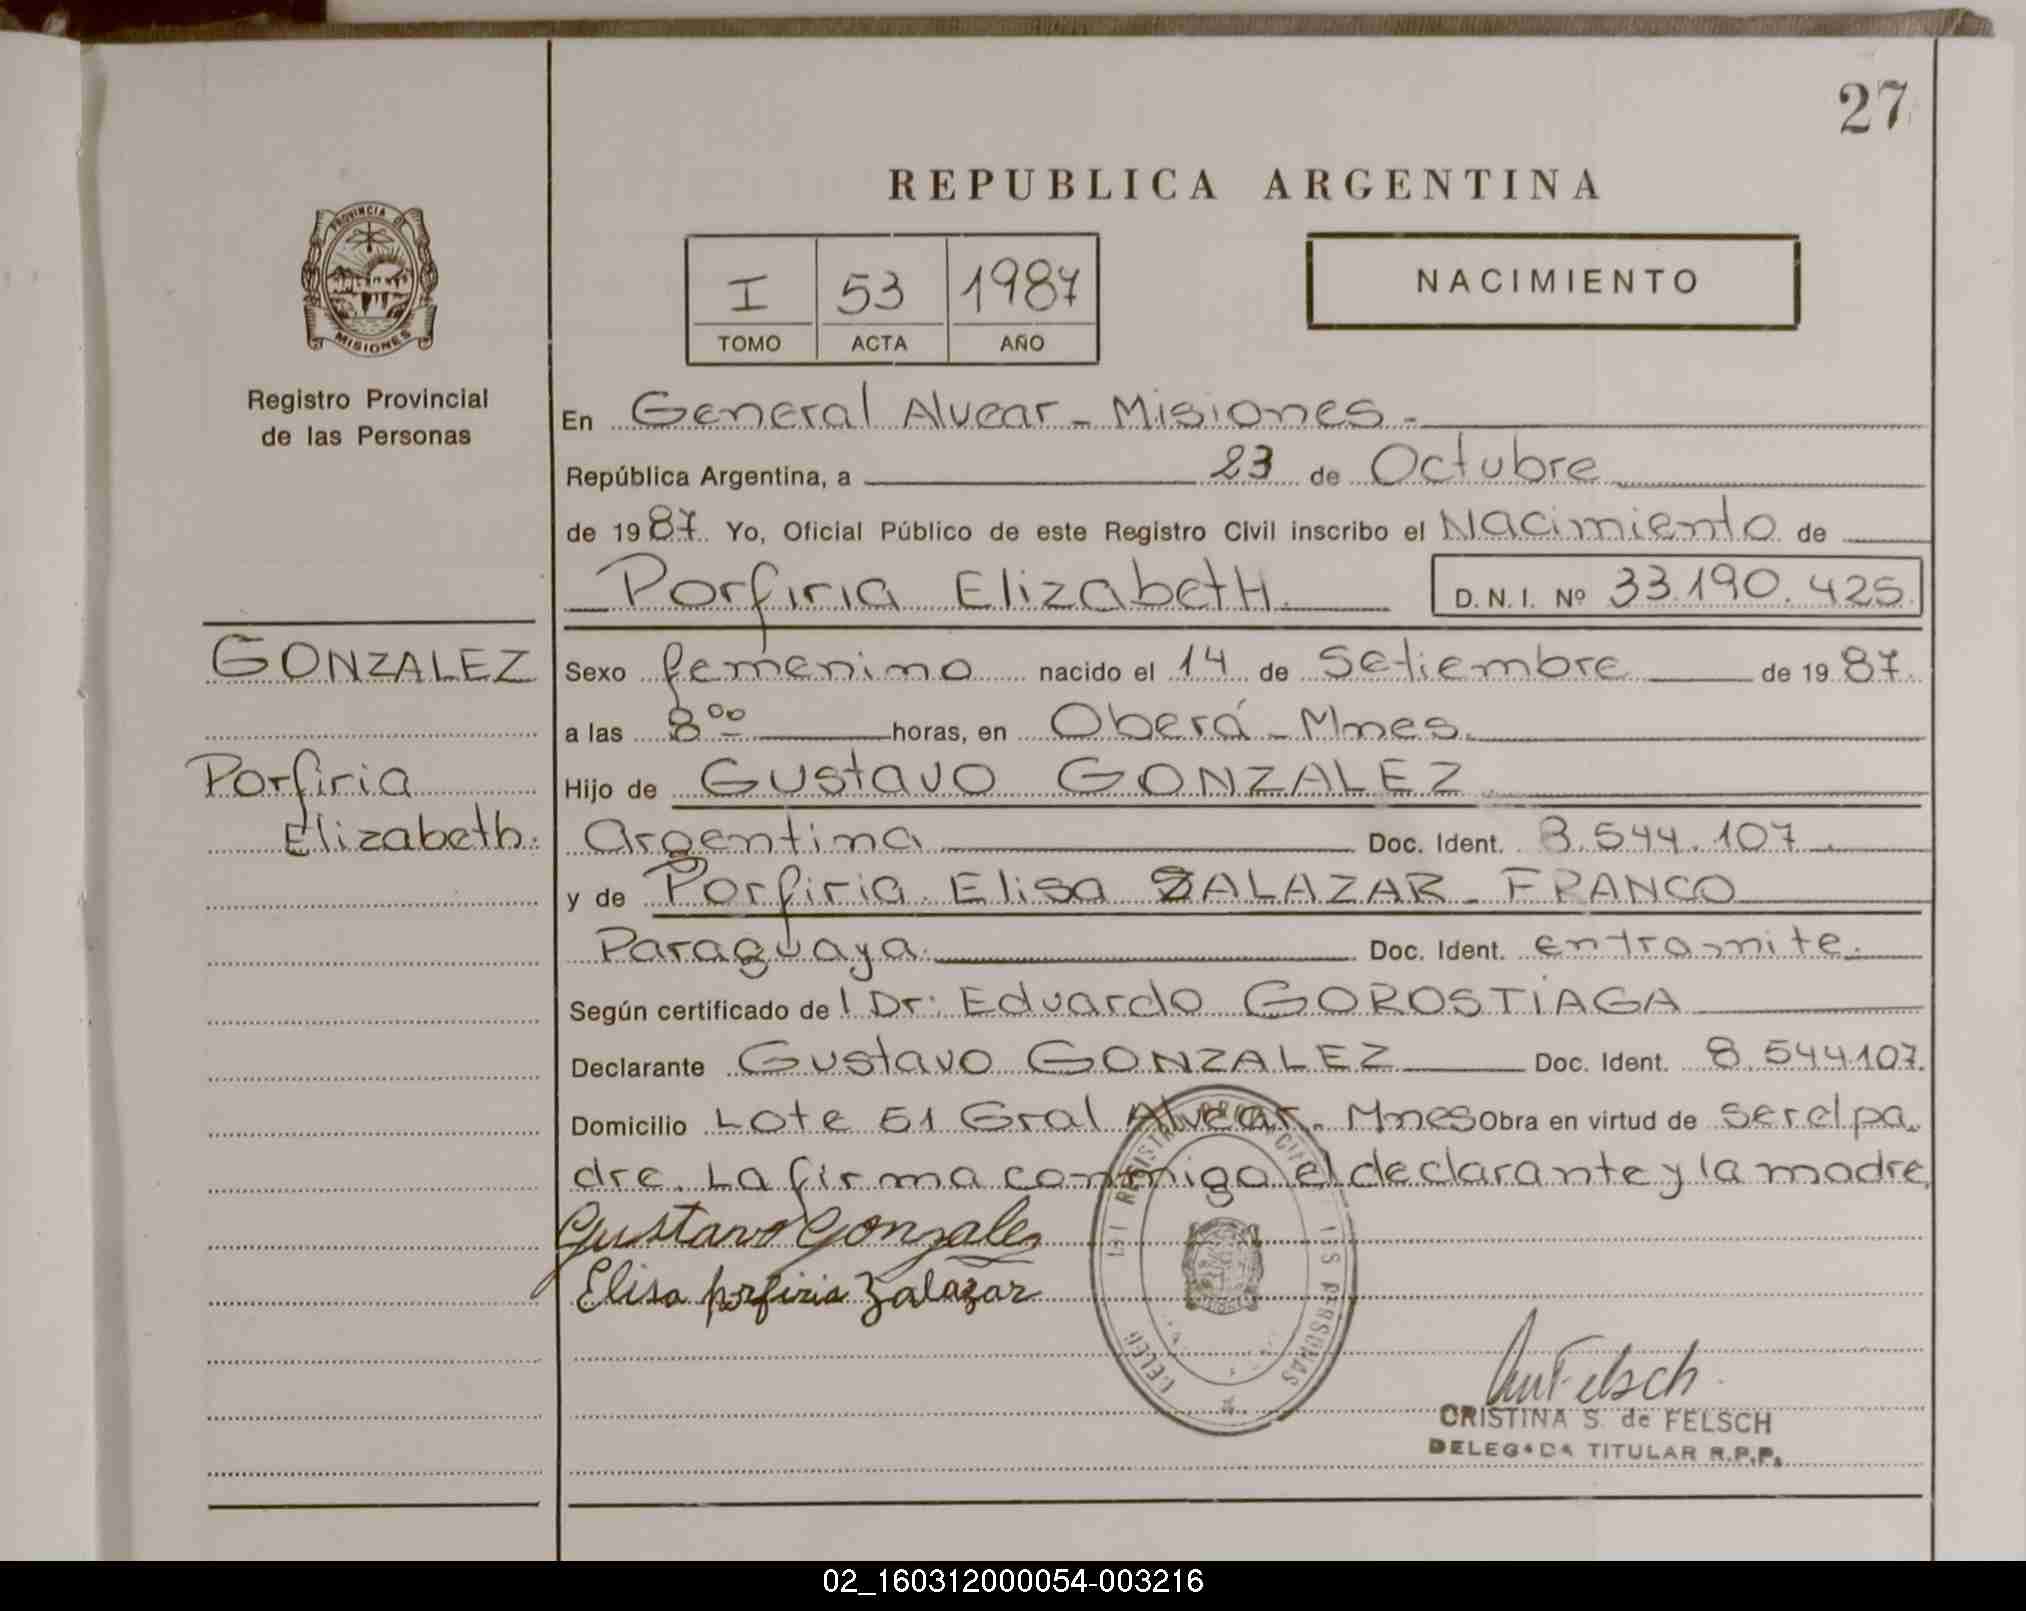 27
REPUBLICA ARGENTINA
PROVINCIA DE
MISIONES
Registro Provincial
de las Personas
I 53 1987
TOMO ACTA AÑO
NACIMIENTO
En General Alvear - Misiones -
República Argentina, a 23 de Octubre
de 1987. Yo, Oficial Público de este Registro Civil inscribo el Nacimiento de
Porfiria Elizabeth. D.N.I. Nº 33.190.425
GONZALEZ
Porfiria
Elizabeth.
Sexo femenino nacido el 14 de Setiembre de 1987.
a las 8 00 horas, en Oberá - Mnes.
Hijo de Gustavo GONZALEZ
Argentina Doc. Ident. 8.544.107.
y de Porfiria Elisa SALAZAR - FRANCO
Paraguaya. Doc. Ident. entramite.
Según certificado de l Dr: Eduardo GOROSTIAGA
Declarante Gustavo GONZALEZ Doc. Ident. 8.544.107.
Domicilio Lote 51 Gral Alvear - Mnes Obra en virtud de ser el pa
dre. La firma conmigo el declarante y la madre,
Gustavo Gonzalez
Elisa porfiria Zalazar
CRISTINA S. de FELSCH
DELEGADA TITULAR R.P.P.
02_160312000054-003216